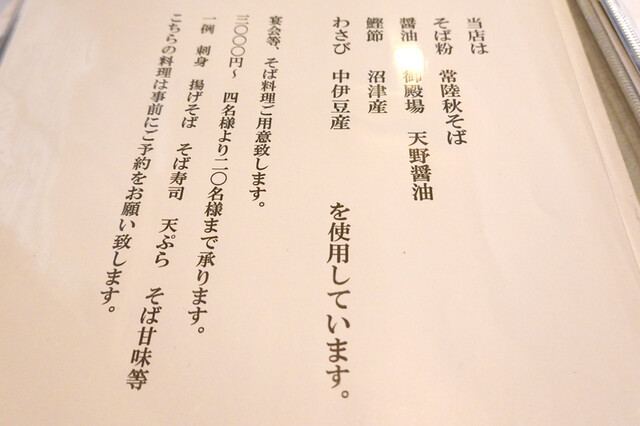 当店は
そば粉　常陸秋そば
醤油　御殿場　天野醤油
鰹節　沼津産
わさび　中伊豆産
を使用しています。
宴会等、そば料理ご用意致します。
三〇〇〇円～　四名様より二〇名様まで承ります。
一例　刺身　揚げそば　そば寿司　天ぷら　そば甘味等
こちらの料理は事前にご予約をお願い致します。